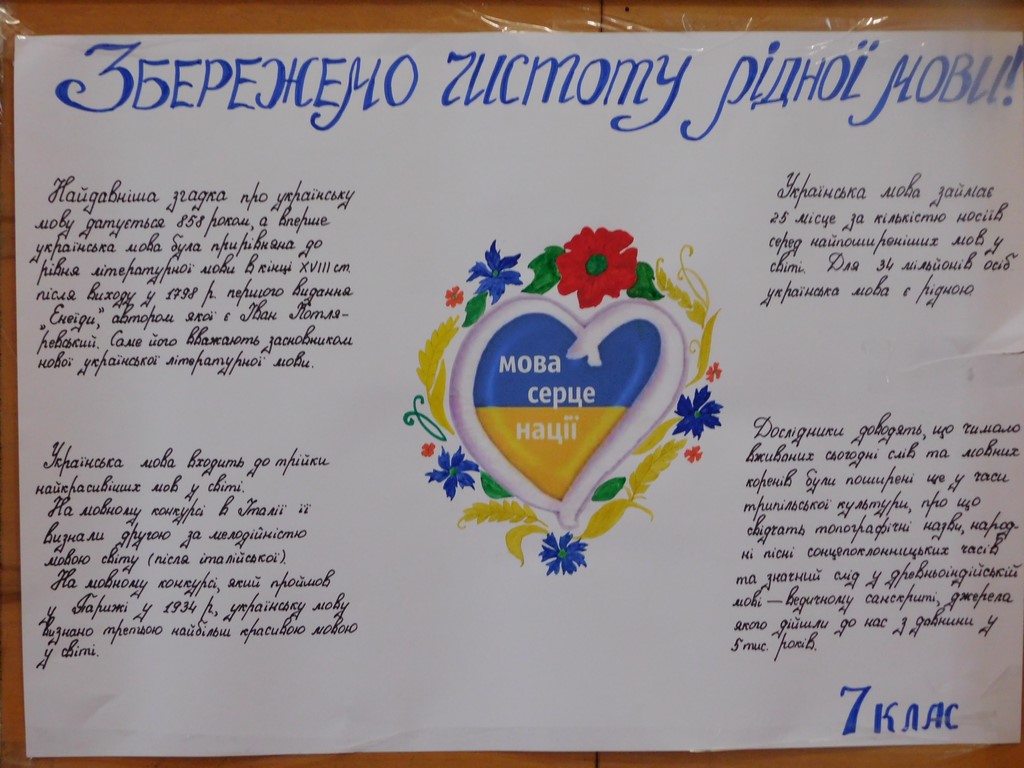 Збережемо чистоту рідної мови!
Найдавніша згадка про українську
мову датується 858 роком, а вперше
українська мова була прирівняна до
рівня літературної мови в кінці XVIII ст.
після виходу у 1798 р. першого видання
„Енеїди," автором якої є Іван Котля-
ревський. Саме його вважають засновником
нової української літературної мови.
Українська мова входить до трійки
найкрасивіших мов у світі.
На мовному конкурсі в Італії її
визнали другою за мелодійністю
мовою світу (після італійської).
На мовному конкурсі, який пройшов
у Парижі у 1934 р, українську мову
визнано третьою найбільш красивою мовою
у світі.
мова
серце
нації
Українська мова займає
25 місце за кількістю носіїв
серед найпоширеніших мов у
світі. Для 34 мільйонів осіб
українська мова є рідною.
Дослідники доводять, що чимало
вживаних сьогодні слів та мовних
коренів були поширені ще у часи
трипільської культури, про що
свідчать топографічні назви, народ-
ні пісні сонцепоклонницьких часів
та значний слід у древньоіндійській
мові — ведичному санскриті, джерела
якого дійшли до нас з давнини у
5 тис. років.
7 клас